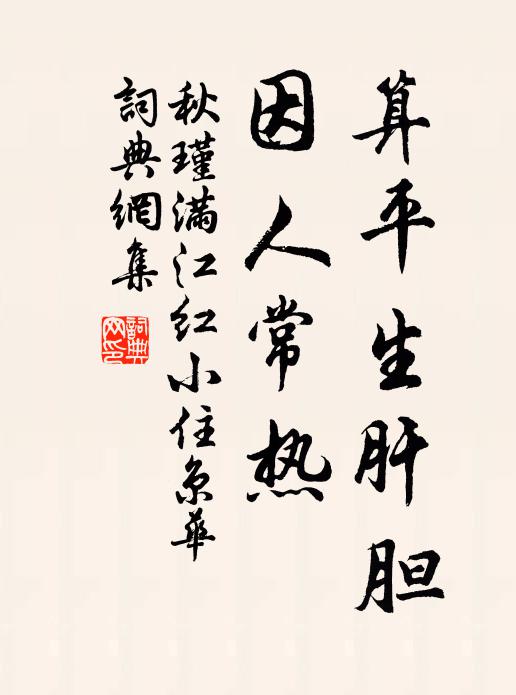 算平生肝胆
因人常热
秋瑾满江红小住京華
詞典網集
詞典网印